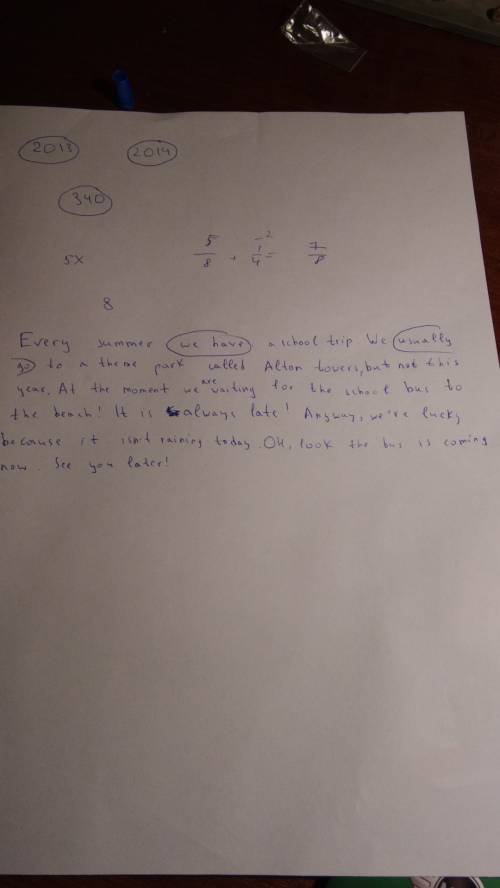 2013 2014
340
5 1 -2 7
5x 8 + 4 = 8
8
Every summer we have a school trip We usually
go to a theme park called Alton towers, but not this
year. At the moment we are waiting for the school bus to
the beach! It is always late! Anyway, we're lucky
because it isn't raining today. Oh, look the bus is coming
now. See you later!